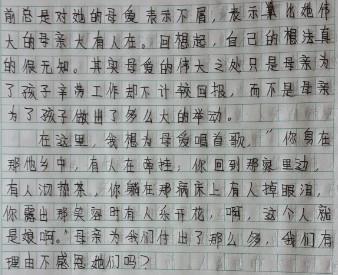 前总是对她的母爱表示不屑，表示莫比她伟
大的母亲大有人在。回想起，自己的想法真
的很无知。其实母爱的伟大之处只是母亲为
了孩子辛劳工作却不计较回报，而不是母亲
为了孩子做出了多么大的举动。
在这里，我想为母爱唱首歌，“你身在
那他乡中，有人在牵挂；你回到那家里边，
有人沏热茶，你躺在那病床上有人掉眼泪，
你露出那笑容时有人乐开花，啊，这个人就
是娘啊。”母亲为我们付出了那么多，我们有
理由不感恩她们吗？